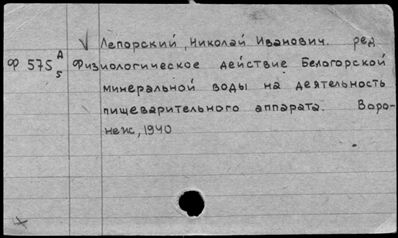 √ Лепорский, Николай Иванович. ред.
Ф 575 А/5 Физиологическое действие Белогорской
минеральной воды на деятельность
пищеварительного аппарата. Воро-
неж, 1940